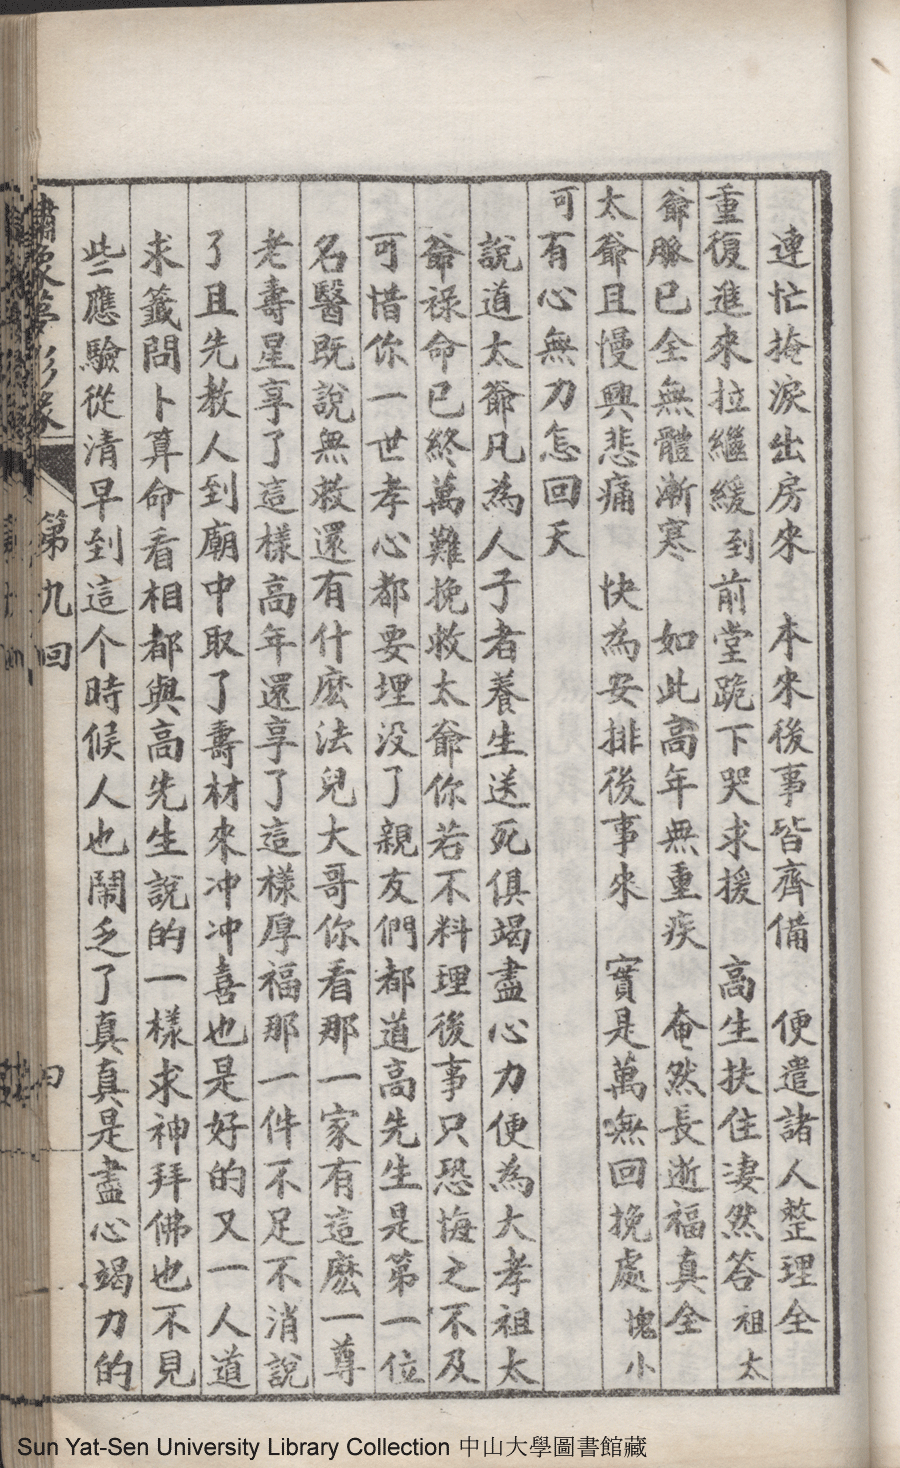 連忙掩淚出房來　本來後事皆齊備　便遣諸人整理全
重復進來拉繼緩　到前堂跪下哭求援　高生扶住淒然答　祖太
爺脈已全無體漸寒　如此高年無重疾　奄然長逝福真全
太爺且慢興悲痛　快為安排後事來　實是萬無回挽處　愧小
可有心無力怎回天
說道太爺凡為人子者養生送死俱竭盡心力便為大孝祖太
爺祿命已終萬難挽救太爺你若不料理後事只恐悔之不及
可惜你一世孝心都要埋沒了親友們都道高先生是第一位
名醫既說無救還有什麽法兒大哥你看那一家有這麽一尊
老壽星享了這樣高年還享了這樣厚福那一件不足不消說
了且先教人到廟中取了壽材來冲冲喜也是好的又一人道
求籤問卜算命看相都與高先生說的一樣求神拜佛也不見
些應驗從清早到這个時候人也鬧乏了真真是盡心竭力的
繡像夢影緣　第九回
Sun Yat-Sen University Library Collection 中山大學圖書館藏